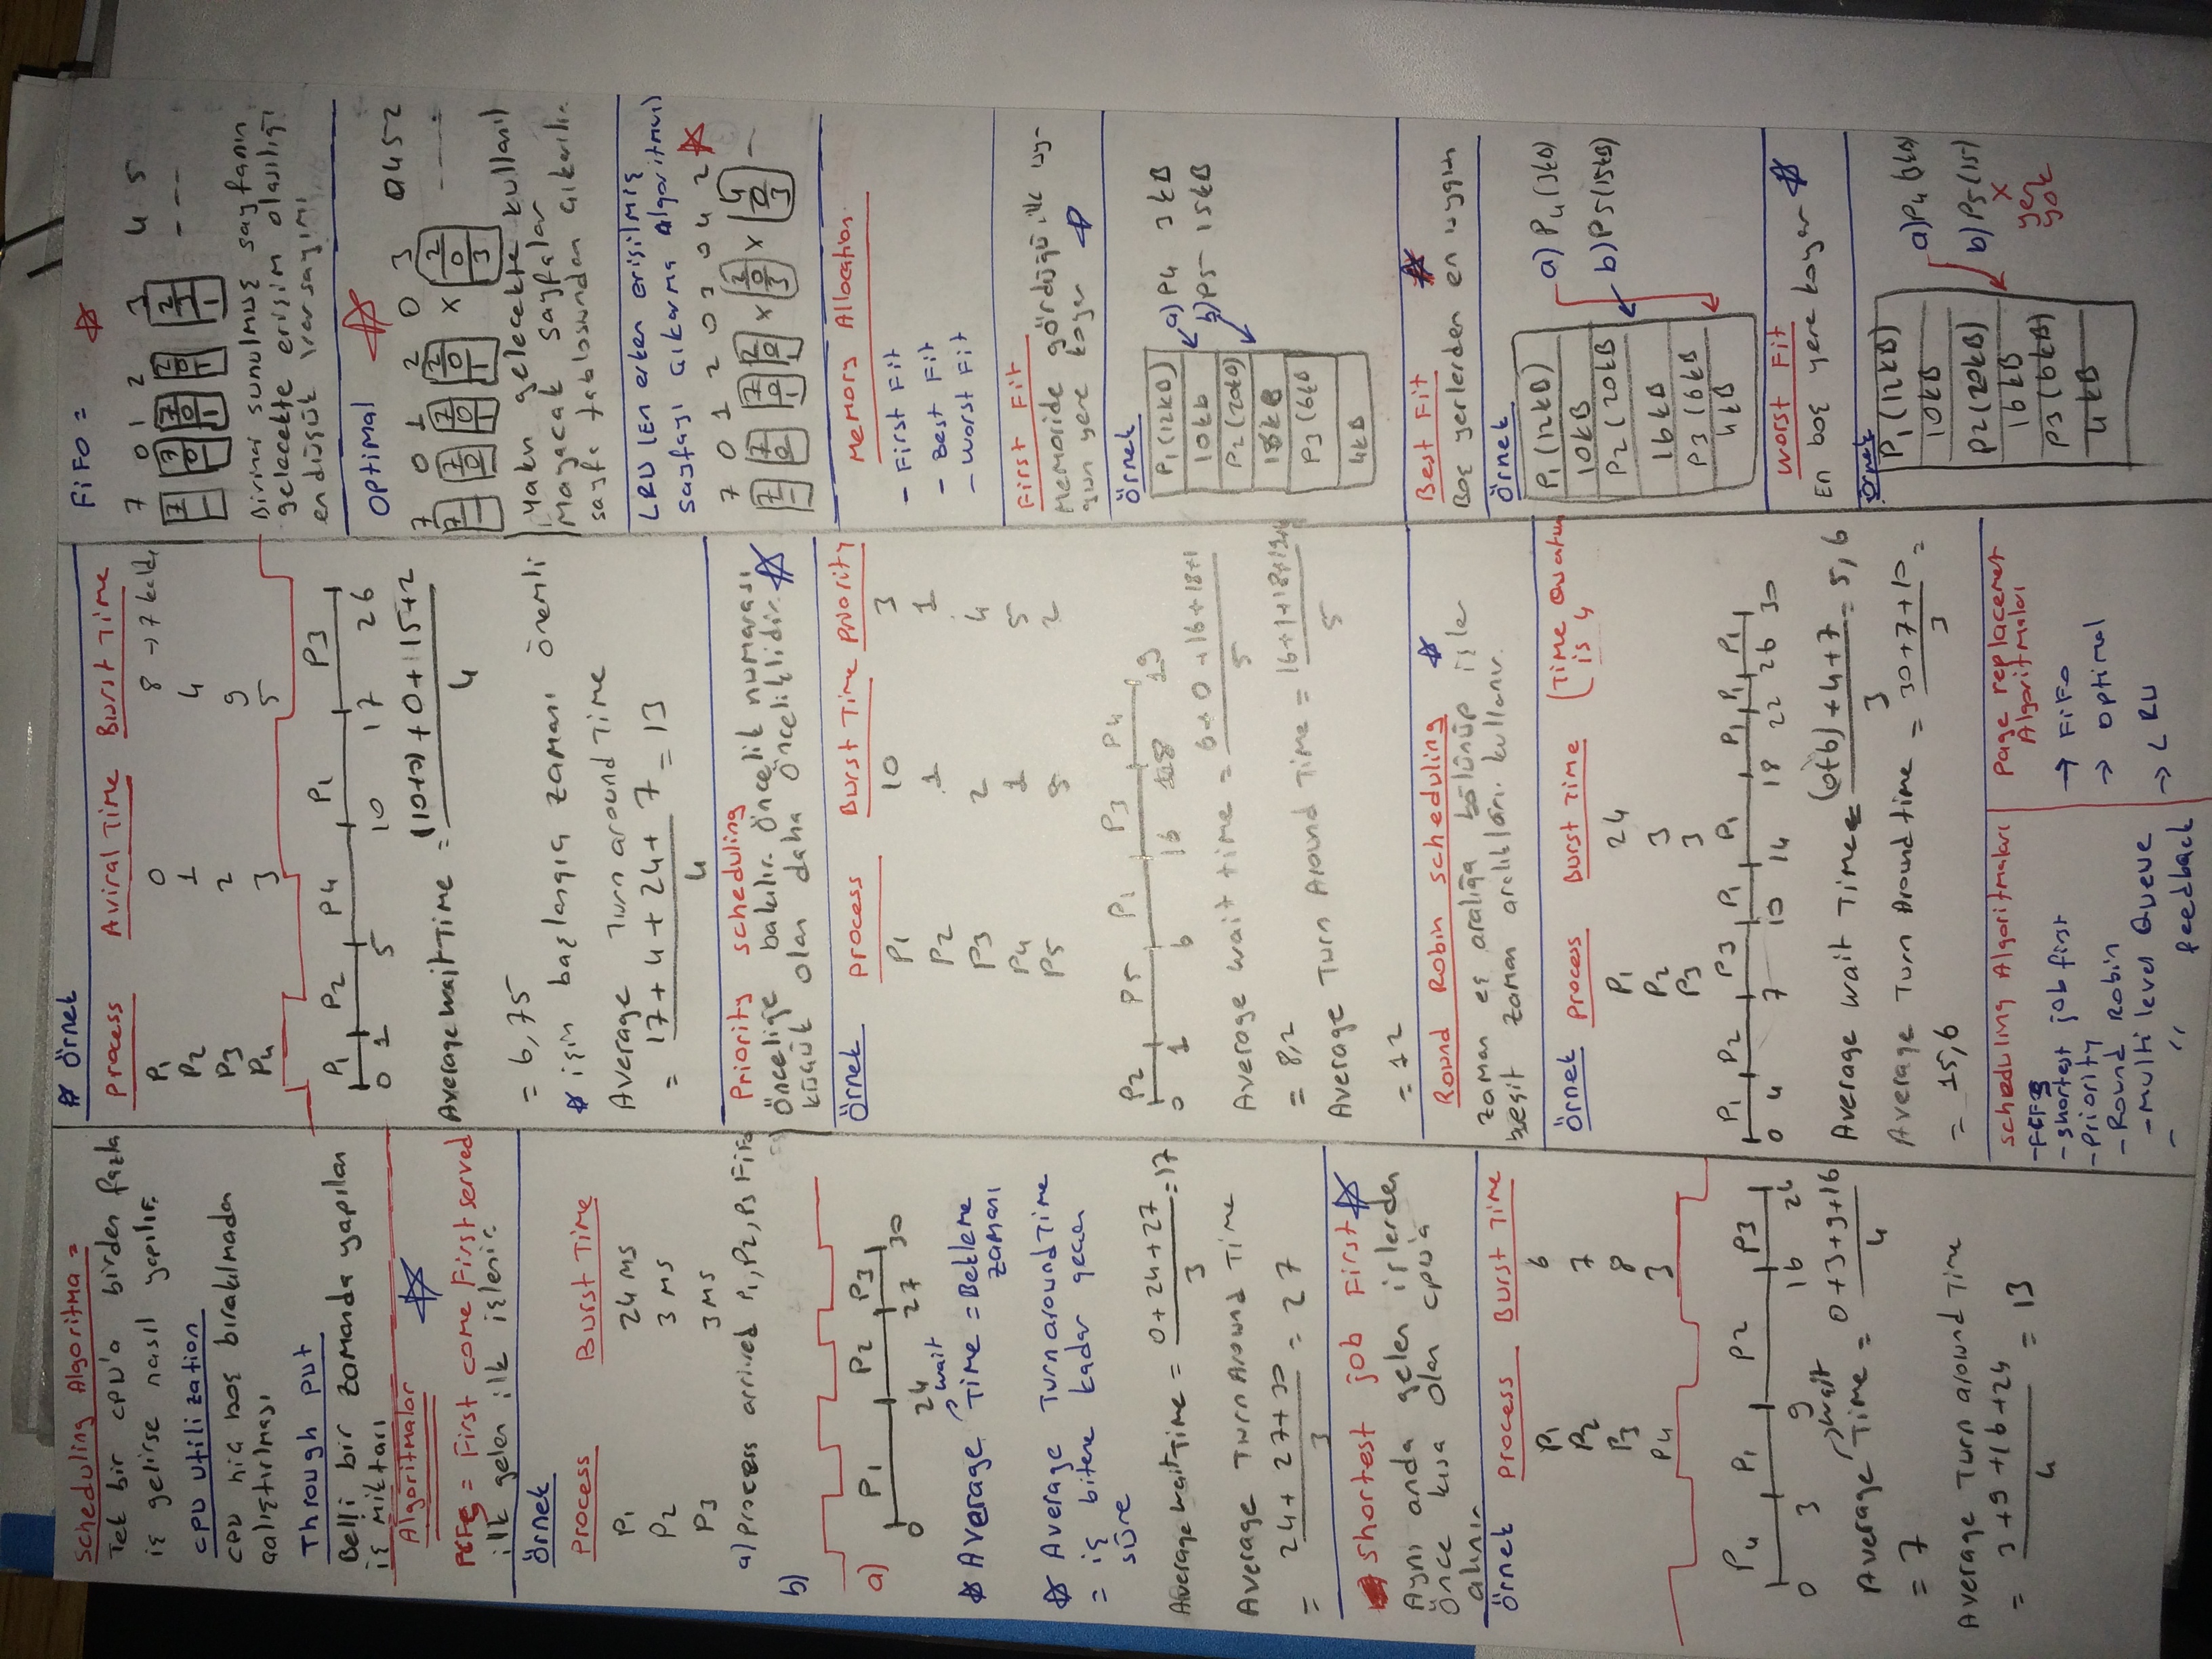 Scheduling Algoritma =
Tek bir CPU'a birden fazla
iş gelirse nasıl yapılır.
CPU Utilization
CPU hiç boş bırakılmadan
çalıştırılması
Through put
Belli bir zamanda yapılan
iş miktarı
Algoritmalar
FCFS = First come First served
ilk gelen ilk işlenir.
Örnek
Process Burst Time
P1 24 ms
P2 3 ms
P3 3 ms
a) Process arrived P1, P2, P3 FiFo
b)
a) P1 P2 P3
0 24 27 30
Average Time = Bekleme
wait
zamanı
Average Turn around Time
= iş bitene kadar geçen
süre
Average wait Time = 0+24+27 / 3 = 17
Average Turn Around Time
= 24+27+30 / 3 = 27
Shortest job First
Aynı anda gelen işlerden
önce kısa olan CPU'a
alınır
Örnek Process Burst Time
P1 6
P2 7
P3 8
P4 3
P4 P1 P2 P3
0 3 9 16 24
wait
Average Time = 0+3+9+16 / 4
= 7
Average Turn around Time
= 3+9+16+24 / 4 = 13
Örnek
Process Aviral Time Burst Time
P1 0 8 → 7 kaldı
P2 1 4
P3 2 9
P4 3 5
P1 P2 P4 P1 P3
0 1 5 10 17 26
Average wait Time = + 0 + 15+2 / 4
= 6,75
işin başlangıç zamanı önemli
Average Turn around Time
= 17+4+24+7 / 4 = 13
Priority scheduling
Önceliğe bakılır. Öncelik numarası
küçük olan daha önceliklidir.
Örnek Process Burst Time Priority
P1 10 3
P2 1 1
P3 2 4
P4 1 5
P5 5 2
P2 P5 P1 P3 P4
0 1 6 16 18 19
Average wait time = 6+0+16+18+1 / 5
= 8,2
Average Turn Around Time = 16+1+18+19+6 / 5
= 12
Round Robin scheduling
zaman eş aralığa bölünüp işler
eşit zaman aralıkları kullanır.
Örnek Process Burst Time (Time Quantum
is 4
P1 24
P2 3
P3 3
P1 P2 P3 P1 P1 P1 P1 P1
0 4 7 10 14 18 22 26 30
Average wait Time = (0+6)+4+7 / 3 = 5,6
Average Turn Around time = 30+7+10 / 3 =
= 15,6
Scheduling Algoritmaları
- FCFS
- Shortest job first
- Priority
- Round Robin
- Multi level Queue
- " feedback
Page replacemet
Algoritmaları
→ FiFo
→ Optimal
→ LRU
FiFO =
7 0 1 2 3 4 5
7 7 7 2 2
- 0 0 0 3
- - 1 1 1
- - -
Birinci sunulmuş sayfanın
gelecekte erişim olasılığı
en düşük varsayımı
Optimal
7 0 1 2 0 3 0 4 5 2
7 7 7 2 x 2
- 0 0 0 0
- - 1 1 3
yakın gelecekte kullanıl
mayacak sayfalar
sayfa tablosundan çıkarılır.
LRU (En erken erişilmiş
sayfayı çıkarma Algoritması)
7 0 1 2 0 3 0 4 2
7 7 7 2 x 2 x 4 -
- 0 0 0 0 0
- - 1 1 3 3
Memory Allocation
- First Fit
- Best Fit
- Worst Fit
First Fit
Memoride gördüğü ilk uy-
gun yere koyar
Örnek
P1 (12kB)
10kb
P2 (20kB)
18kB
P3 (6kB
4kB
a) P4 3kB
b) P5 15kB
Best Fit
Boş yerlerden en uygun
Örnek
P1 (12kB)
10kB
P2 (20kB
16kB
P3 (6kB
4kB
a) P4 (3kB)
b) P5 (15kB)
Worst Fit
En boş yere koyar
Örnek
P1 (12kB)
10kB
P2 (20kB)
16kB
P3 (6kB)
4kB
a) P4 (3kB)
b) P5 (15)
x
yer
yok